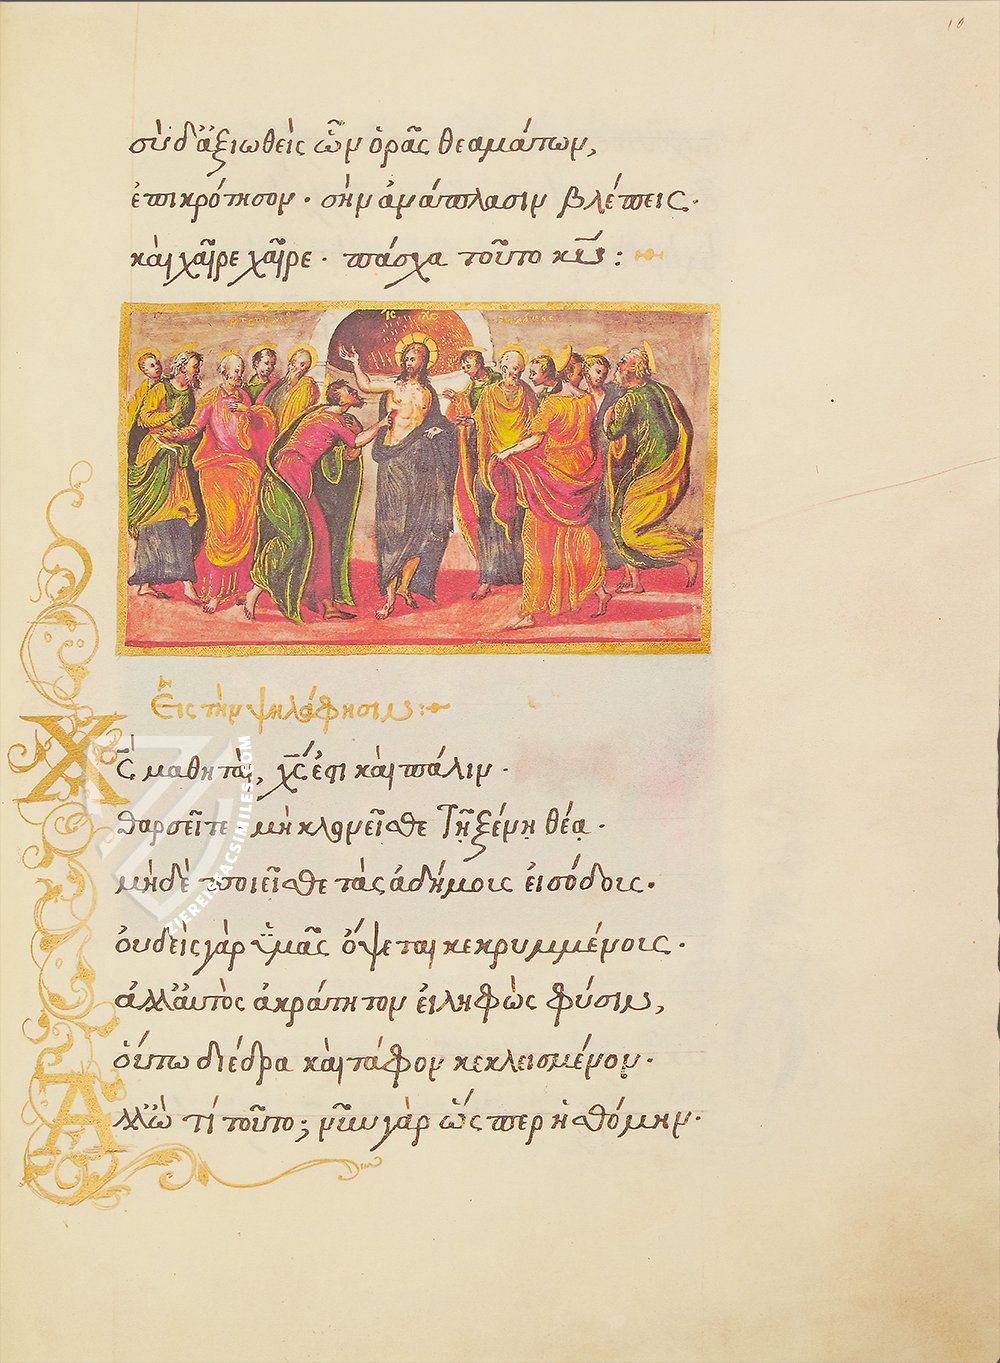 10
σὺ δ' ἀξιωθεὶς ὧν ὁρᾶς θεαμάτων,
ἐπικρότησον · σὴν ἀνάπλασιν βλέπεις ·
καὶ χαῖρε χαῖρε · πάσχα τοῦτο κυ̅ :
ΙC ΧC
Εἰς τὴν ψηλάφησιν :
Χ̅ς μαθηταί, χ̅ς ἐστι καὶ πάλιν ·
θαρσεῖτε μὴ κλονεῖσθε τῇ ξένῃ θέᾳ ·
μηδὲ ποιεῖσθε τὰς ἀδήμοις εἰσόδοις ·
οὐδεὶς γὰρ ὑμᾶς ὄψεται κεκρυμμένοις ·
ἀλλ' αὐτὸς ἀκράτητον εἰληφὼς φύσιν,
οὕτω διέδρα καὶ τάφον κεκλεισμένον ·
Ἀλλ' ὢ τί τοῦτο; νῦν γὰρ ὥσπερ ᾐσθόμην ·
ZIEREISFACSIMILES.COM